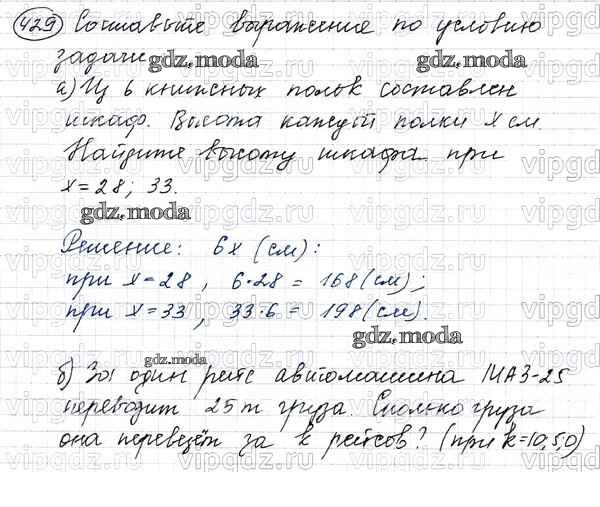 429 Составьте выражение по условию
задачи
а) Из 6 книжных полок составлен
шкаф. Высота каждой полки x см.
Найдите высоту шкафа при
x = 28; 33.
Решение: 6x (см):
при x = 28, 6·28 = 168 (см);
при x = 33, 33·6 = 198 (см).
б) За один рейс автомашина МАЗ-25
перевозит 25 т груза. Сколько груза
она перевезёт за k рейсов? (при k=10,5,0)
gdz.moda
gdz.moda
gdz.moda
gdz.moda
gdz.moda
vipgdz.ru